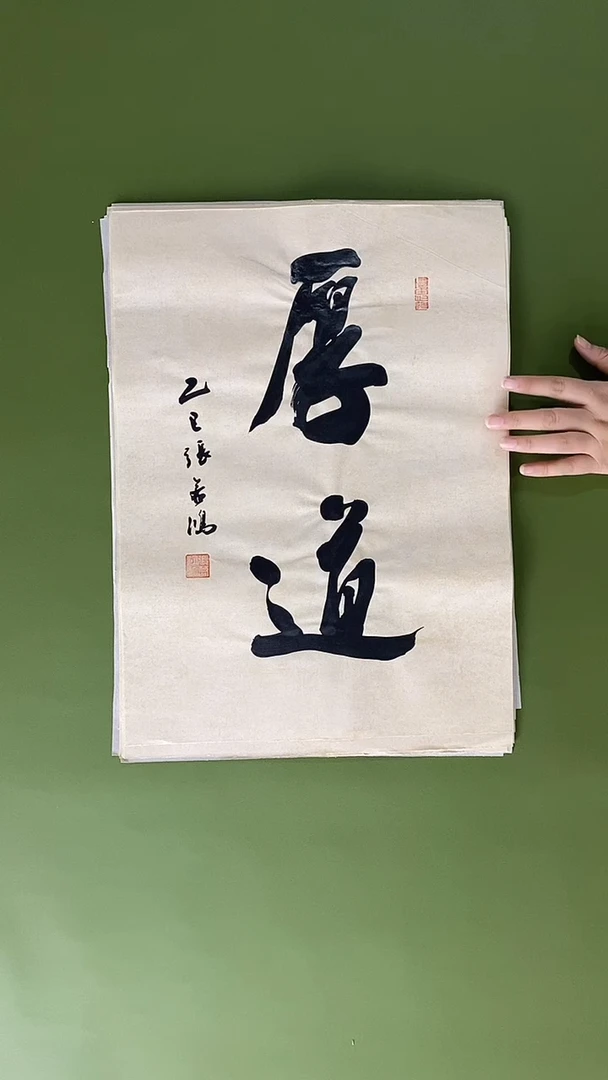 厚道
乙巳張若鴻